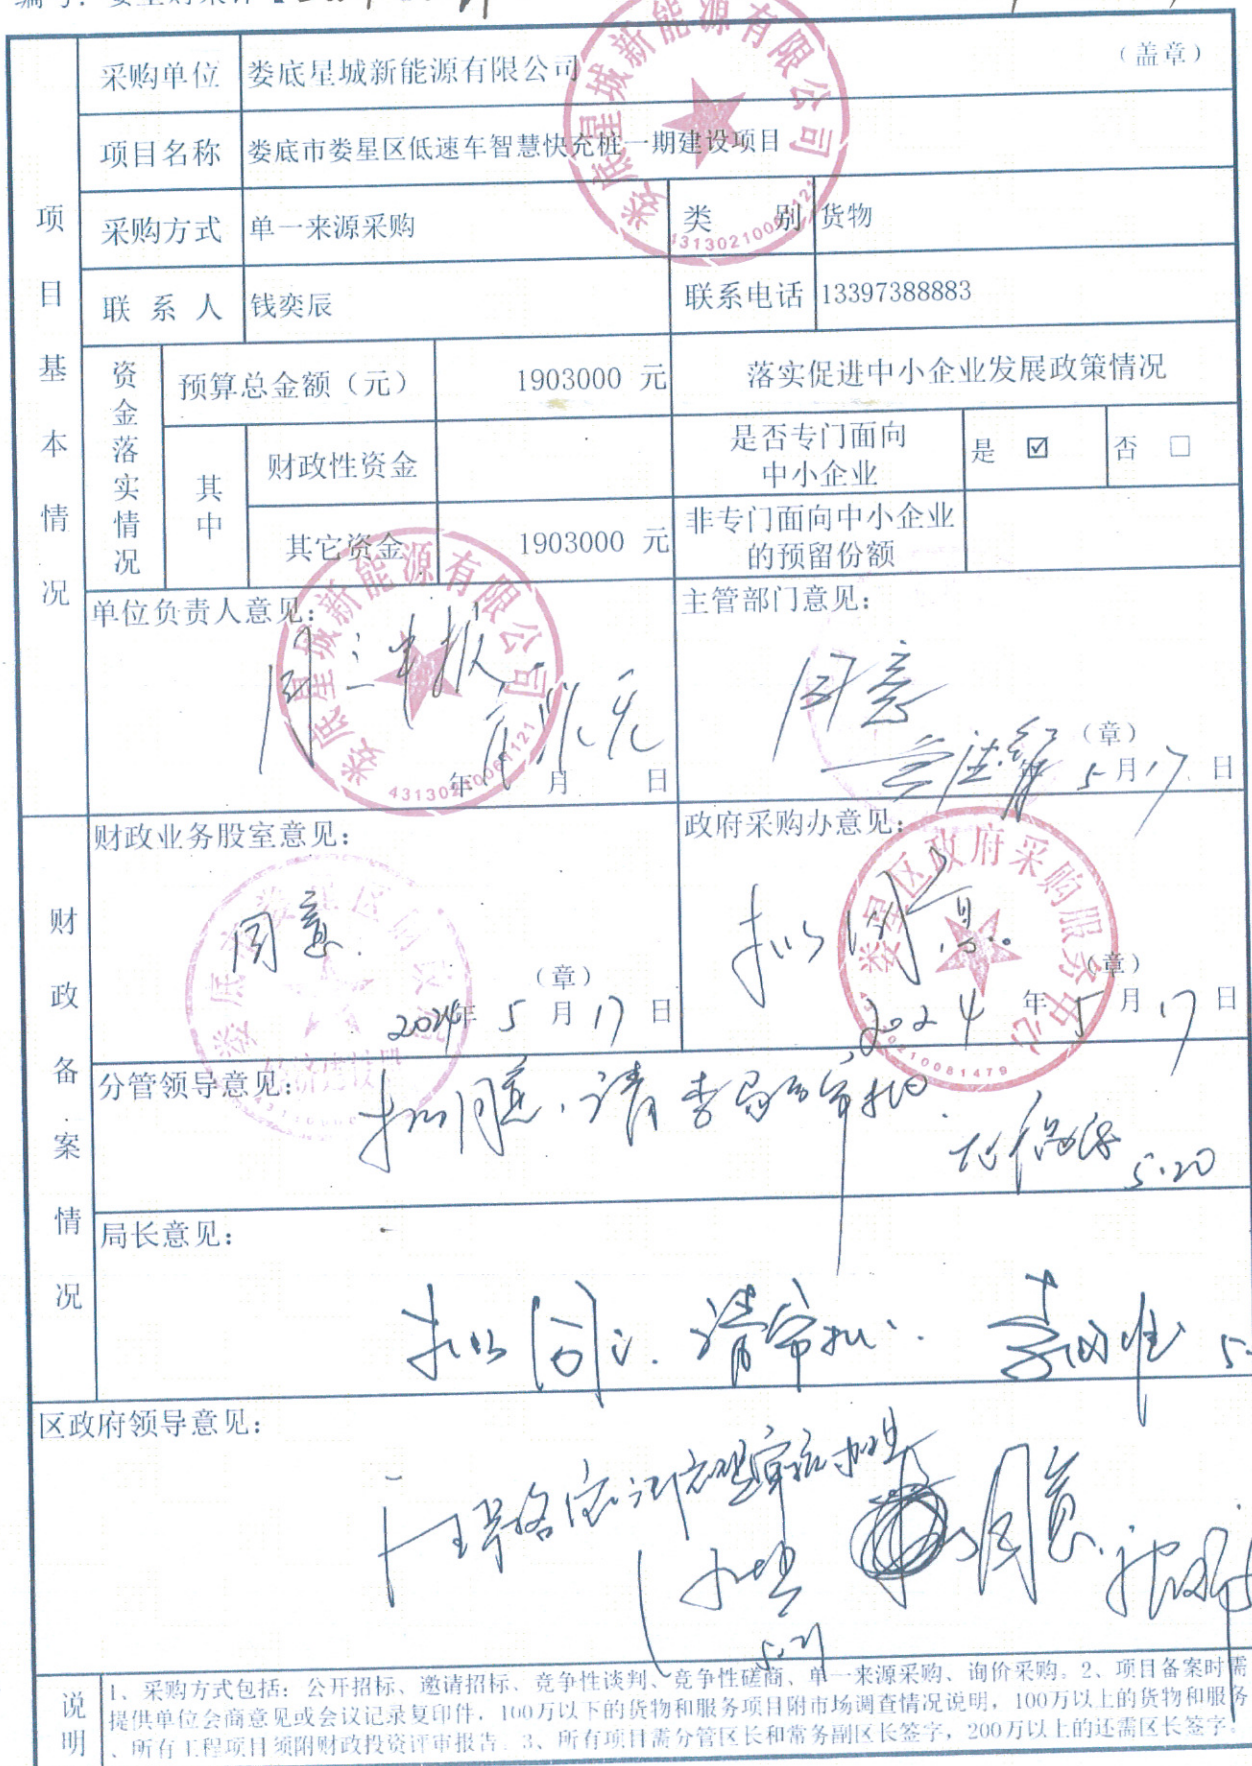 采购单位 娄底星城新能源有限公司 （盖章）
项目名称 娄底市娄星区低速车智慧快充桩一期建设项目
采购方式 单一来源采购 类 别 货物
联系人 钱奕辰 联系电话 13397388883
项目基本情况
资金落实情况
预算总金额（元） 1903000 元 落实促进中小企业发展政策情况
其中
财政性资金 是否专门面向中小企业 是 ☑ 否 □
其它资金 1903000 元 非专门面向中小企业的预留份额
单位负责人意见：
同意申报
年 月 日
主管部门意见：
同意
（章）
年 5月17日
财政备案情况
财政业务股室意见：
同意.
（章）
2024年 5月17日
政府采购办意见：
拟同意。
（章）
2024年5月17日
分管领导意见：
拟同意，请李局长审批.
5.20
局长意见：
拟同意.请审批.
区政府领导意见：
同意.
5.21
说明
1、采购方式包括：公开招标、邀请招标、竞争性谈判、竞争性磋商、单一来源采购、询价采购。2、项目备案时需
提供单位会商意见或会议记录复印件，100万以下的货物和服务项目附市场调查情况说明，100万以上的货物和服务
、所有工程项目须附财政投资评审报告。3、所有项目需分管区长和常务副区长签字，200万以上的还需区长签字。
娄底星城新能源有限公司
娄底星城新能源有限公司
43130210061121
娄星区政府采购服务中心